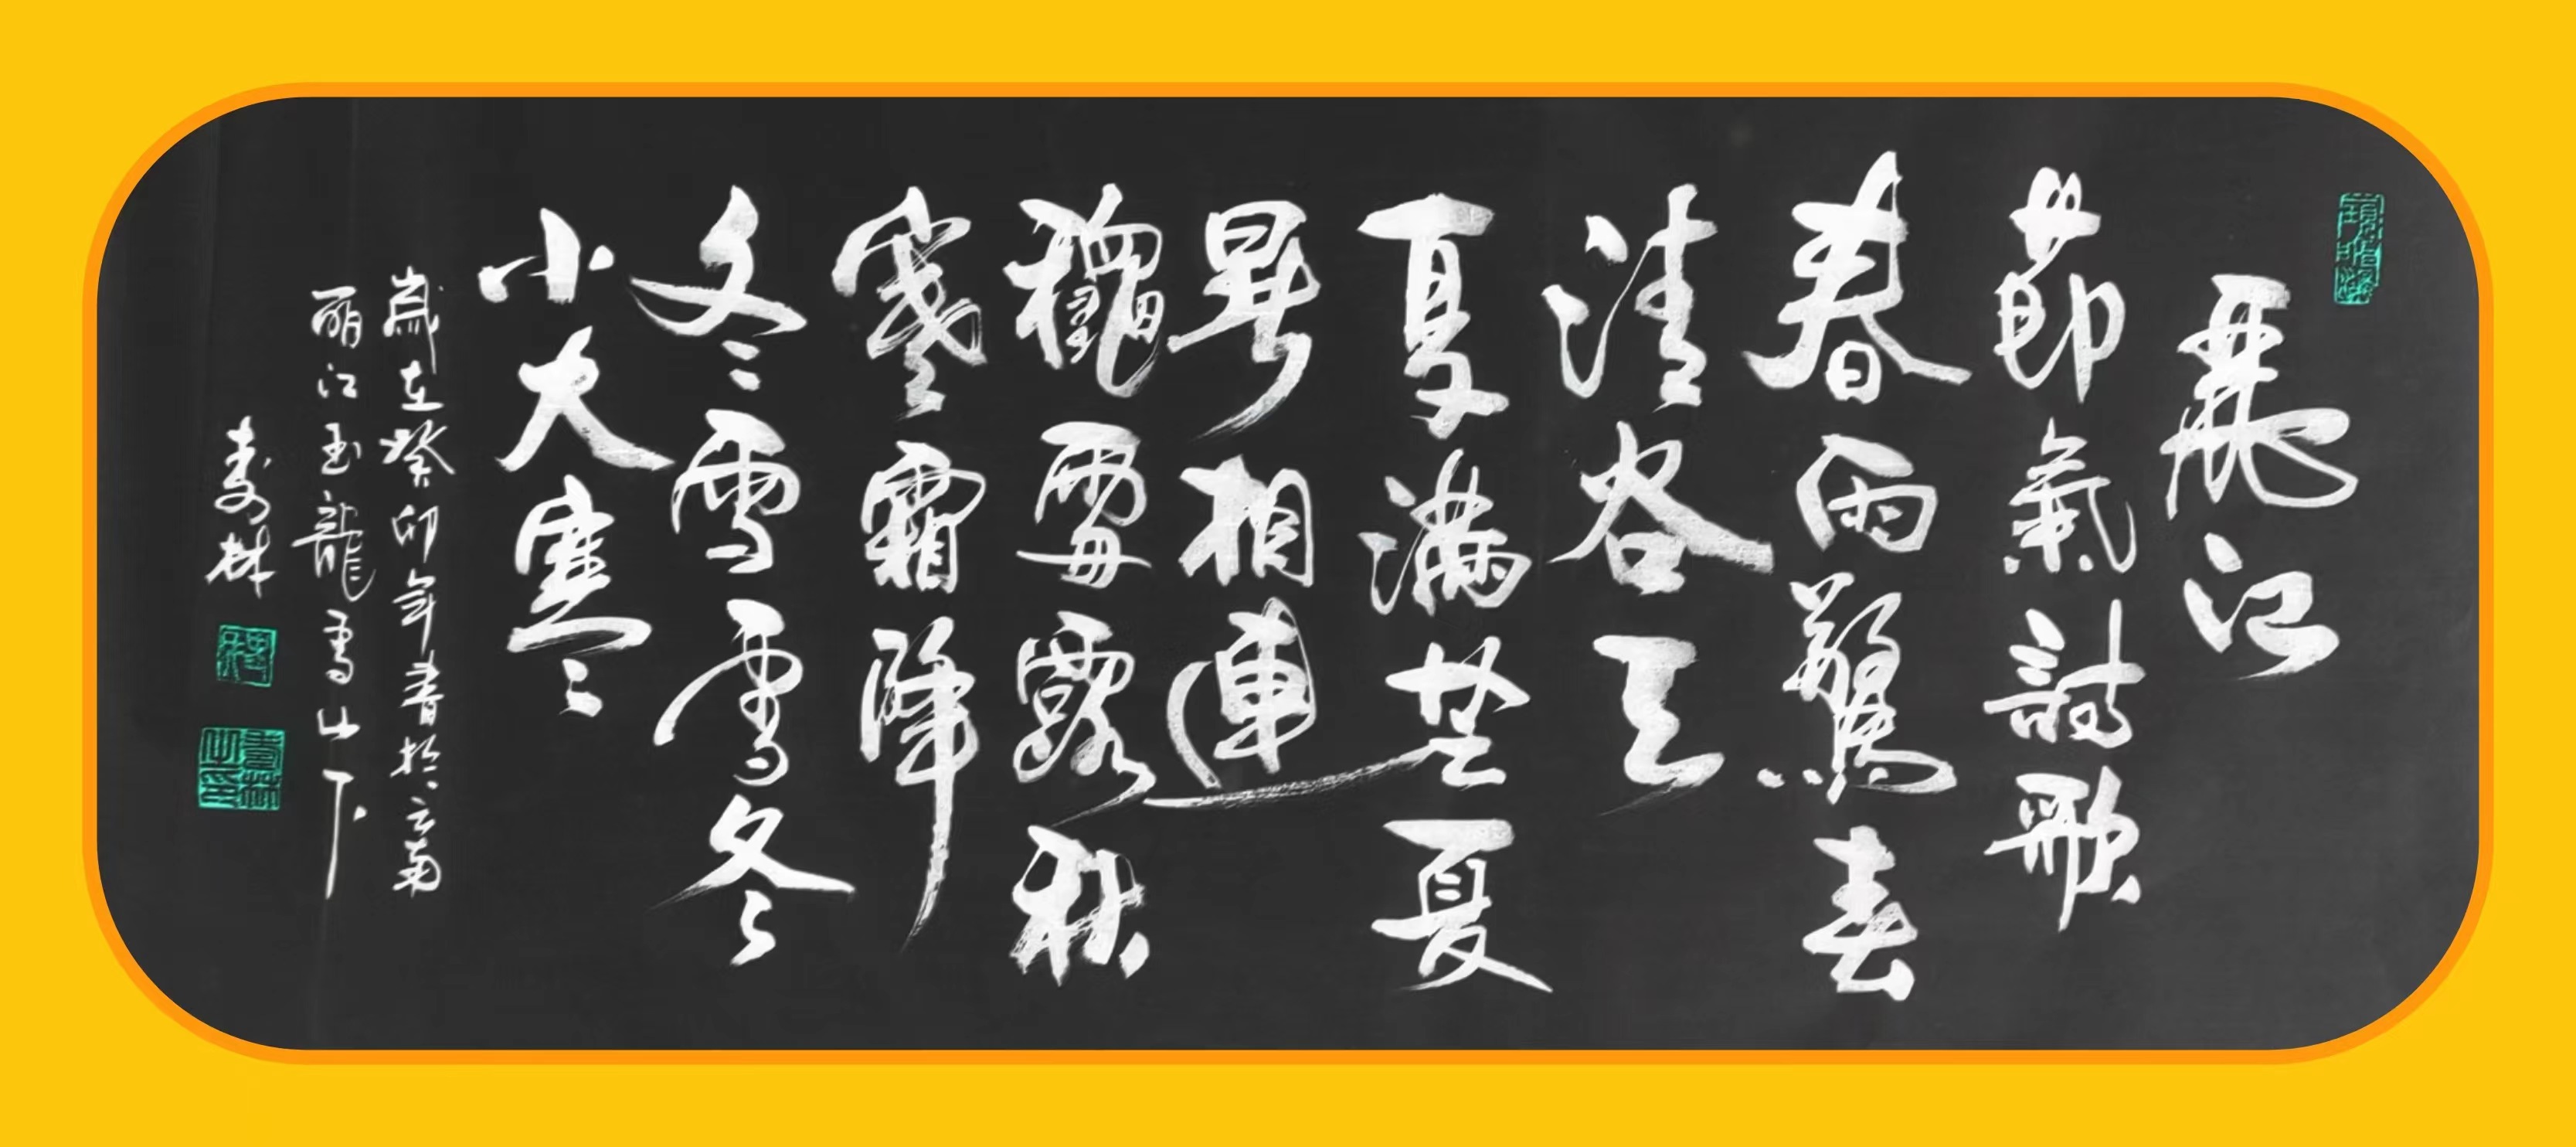 麗江
節氣詩歌
春雨驚春
清谷天
夏滿芒夏
暑相連
龝處露秋
寒霜降
冬雪雪冬
小大寒
歲在癸卯年書於云南
丽江玉龍雪山下
寿林